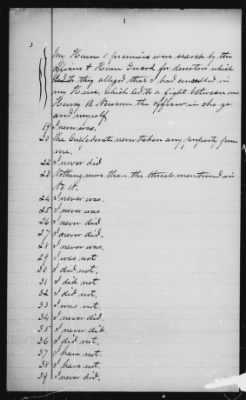 1
3
My House & premises were search by the
officers & Home Guard for deserters while
they alleged that I had concealed in
my House, which led to a fight between me
Henry B. Newsom the officer in charge
and myself
19 I never was.
20 The Confederate never taken any property from
me.
22 I never did
23 Nothing more than the threats mentioned in
No 18.
24 I never was.
25 I never was
26 I never did
27 I never did.
28 I never was.
29 I was not
30 I did not.
31 I did not
32 I did not.
33 I was not
34 I never did.
35 I never did.
36 I did not.
37 I have not.
38 I have not.
39 I never did.